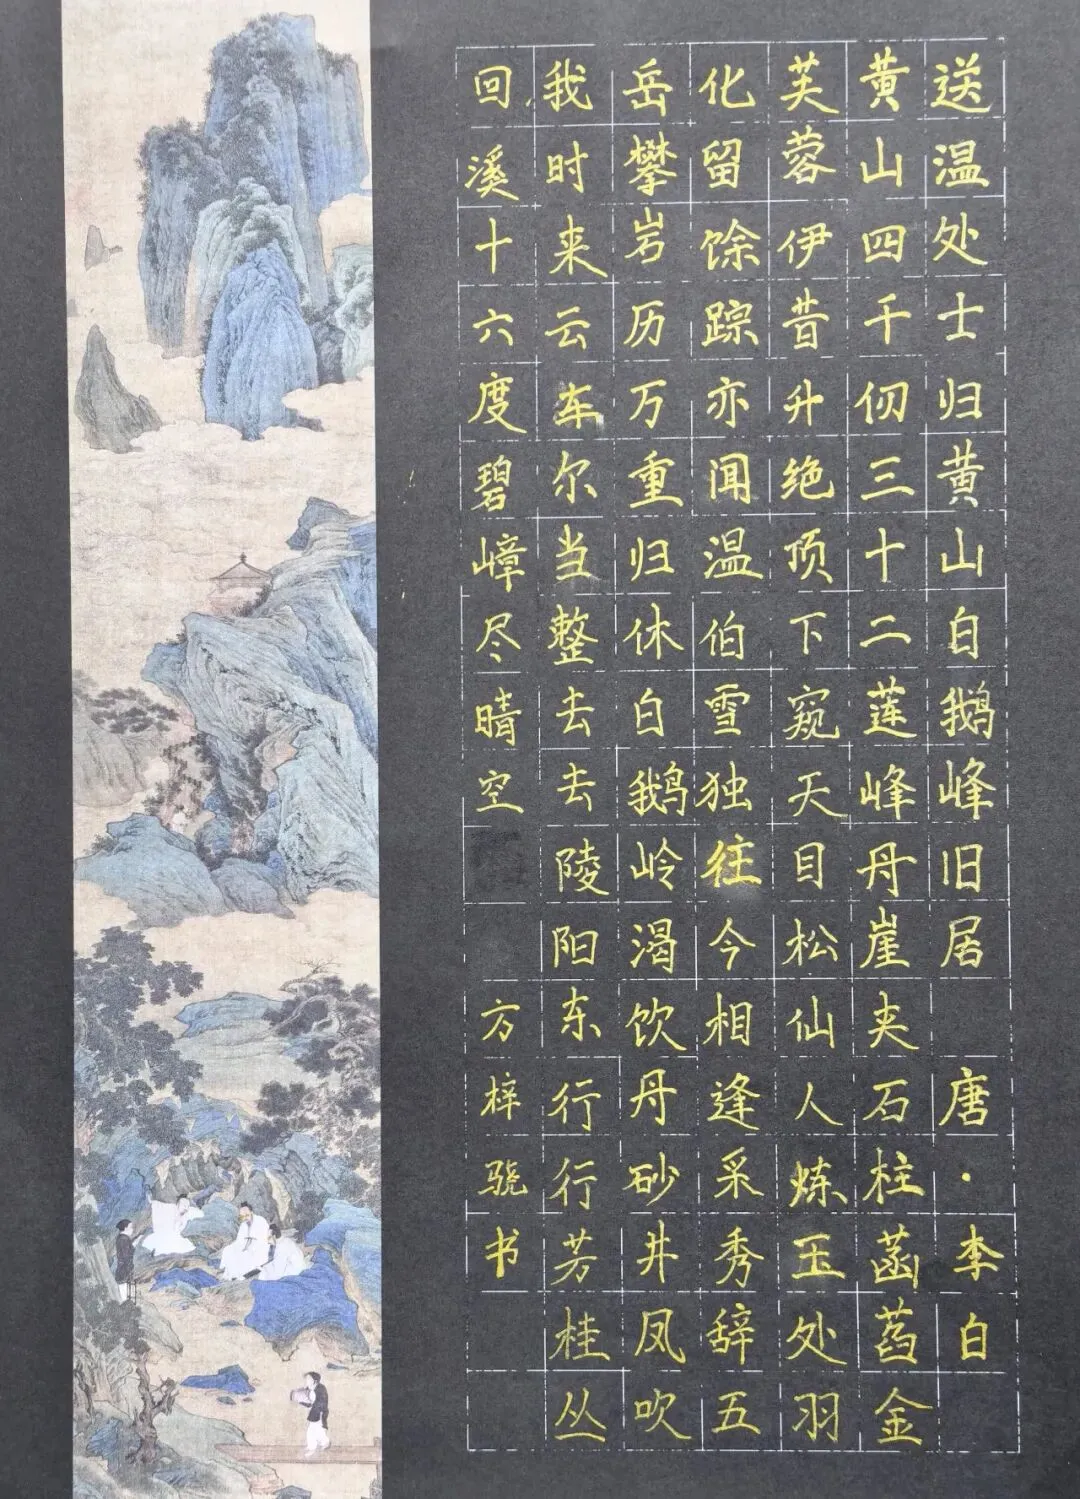 送温处士归黄山白鹅峰旧居 唐·李白
黄山四千仞三十二莲峰丹崖夹石柱菡萏金
芙蓉伊昔升绝顶下窥天目松仙人炼玉处羽
化留馀踪亦闻温伯雪独往今相逢采秀辞五
岳攀岩历万重归休白鹅岭渴饮丹砂井凤吹
我时来云车尔当整去去陵阳东行行芳桂丛
回溪十六度碧嶂尽晴空 方梓骁书